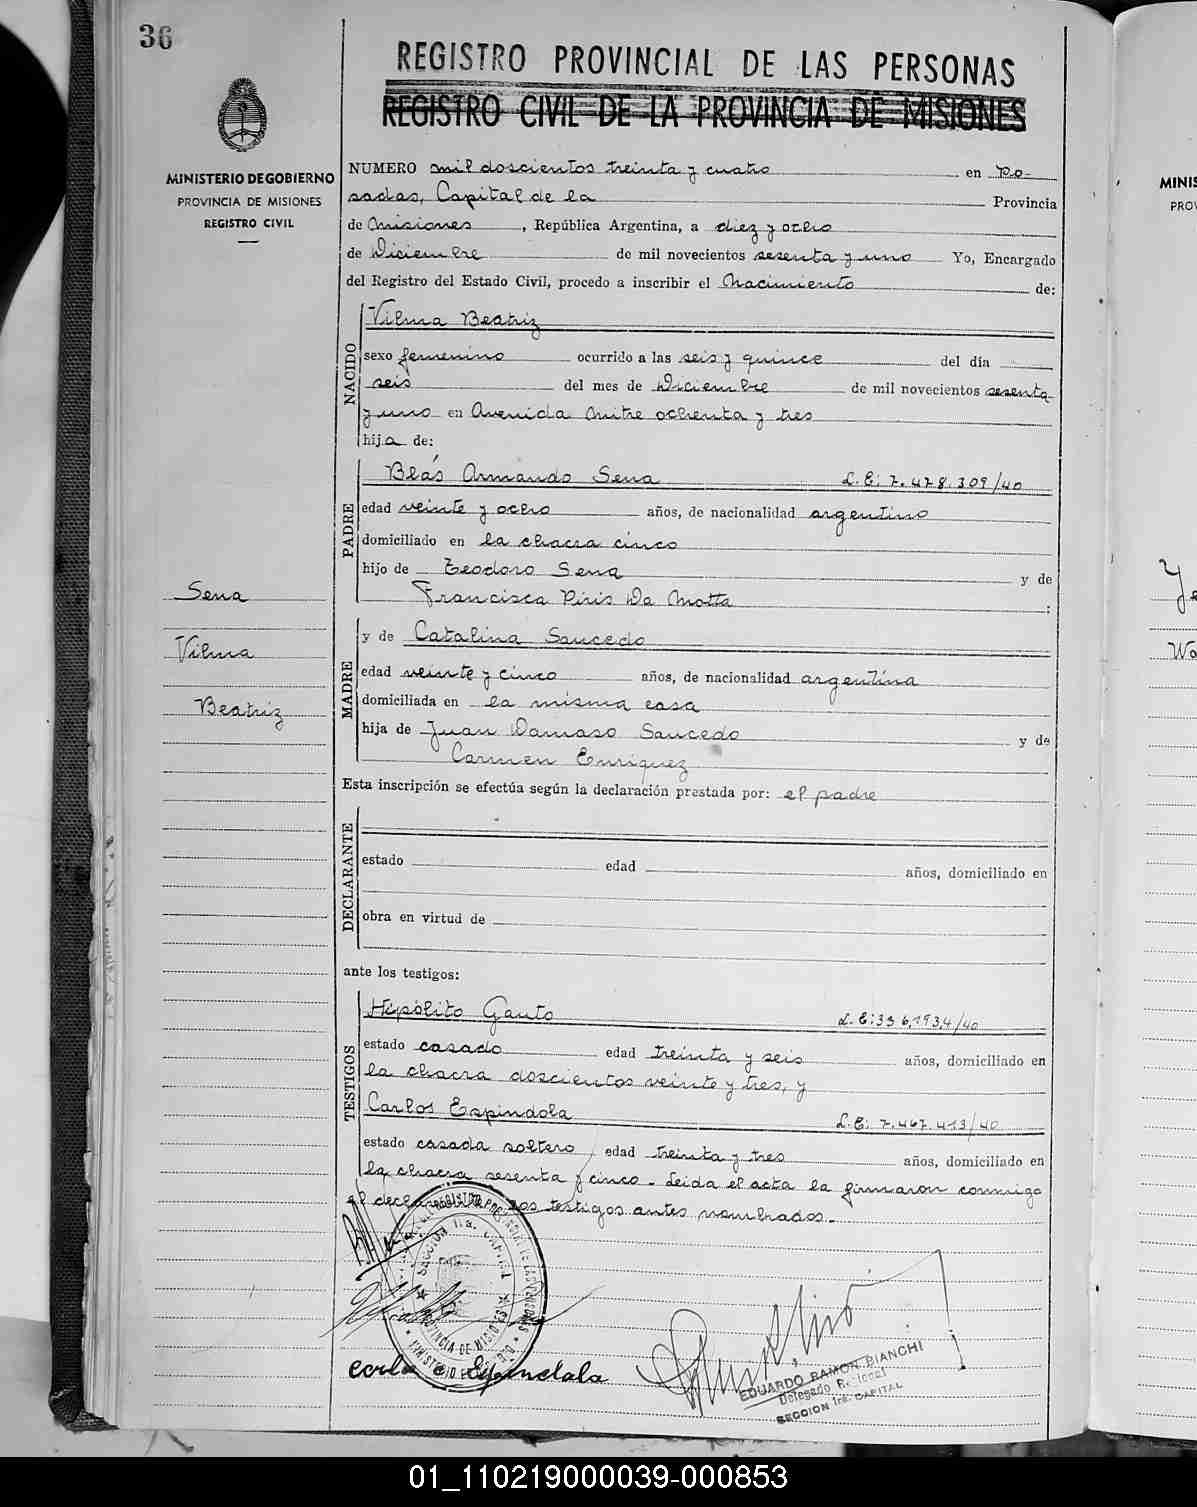 36
REGISTRO PROVINCIAL DE LAS PERSONAS
REGISTRO CIVIL DE LA PROVINCIA DE MISIONES
MINISTERIO DE GOBIERNO
PROVINCIA DE MISIONES
REGISTRO CIVIL
NUMERO mil doscientos treinta y cuatro en Po-
sadas, Capital de la Provincia
de Misiones, República Argentina, a diez y ocho
de Diciembre de mil novecientos sesenta y uno Yo, Encargado
del Registro del Estado Civil, procedo a inscribir el Nacimiento de:
NACIDO
Vilma Beatriz
sexo femenino ocurrido a las seis y quince del día
seis del mes de Diciembre de mil novecientos sesenta
y uno en Avenida Mitre ochenta y tres
hija de:
PADRE
Blás Armando Sena L.E: 7.478.309/40
edad veinte y ocho años, de nacionalidad argentino
domiciliado en la chacra cinco
hijo de Teodoro Sena y de
Francisca Piris Da Motta :
Sena
Vilma
Beatriz
MADRE
y de Catalina Saucedo
edad veinte y cinco años, de nacionalidad argentina
domiciliada en la misma casa
hija de Juan Damaso Saucedo y de
Carmen Enriquez
Esta inscripción se efectúa según la declaración prestada por: el padre
DECLARANTE
estado edad años, domiciliado en
obra en virtud de
ante los testigos:
TESTIGOS
Hipólito Gauto L.E:336,1934/40
estado casado edad treinta y seis años, domiciliado en
la chacra doscientos veinte y tres, y
Carlos Espindola L.E: 7.467.413/40
estado casada soltero edad treinta y tres años, domiciliado en
la chacra sesenta y cinco - Leida el acta la firmaron conmigo
el los testigos antes nombrados.-
Espindola
EDUARDO RAMON BIANCHI
Delegado
SECCION 1ra. CAPITAL
MINIS
PRO
01_110219000039-000853